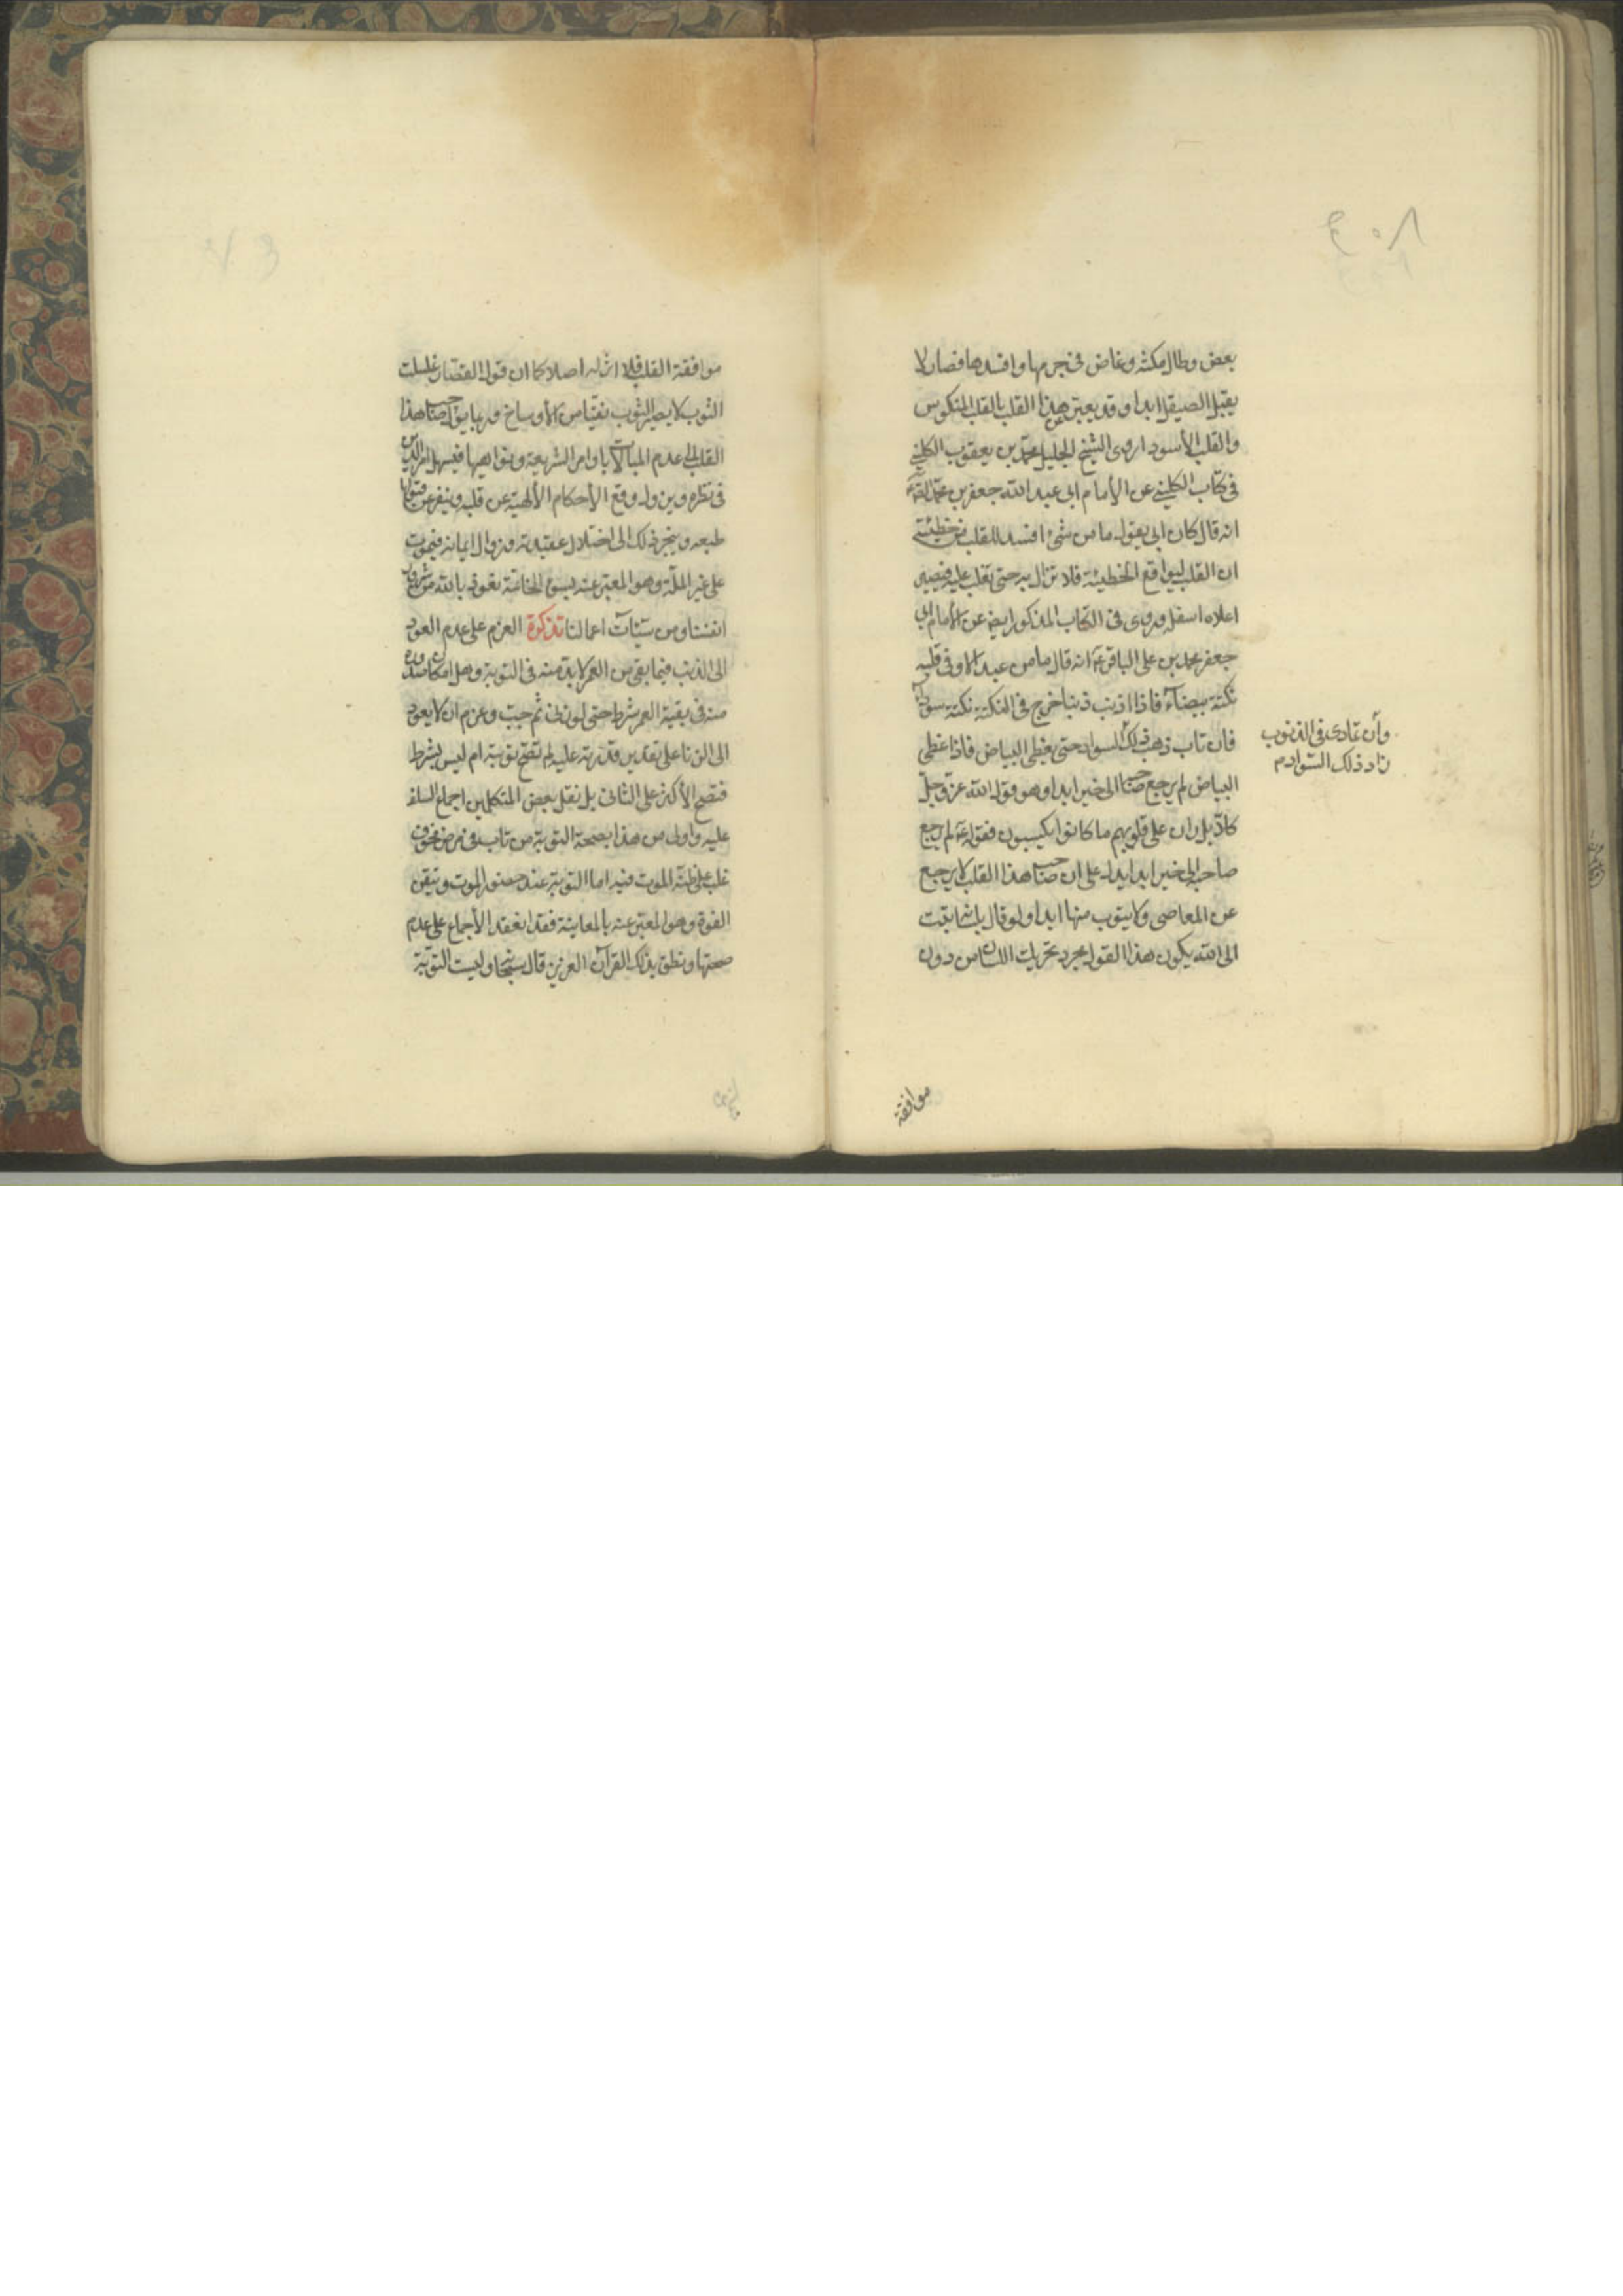 بعض وطال مكثه وغاض فى جرمها وافسدها فصار لا
يقبل الصيقل ابدا وقد يعبر عن هذا القلب بالقلب المنكوس
والقلب الأسود اروى الشيخ الجليل محمد بن يعقوب الكلينى
فى كتاب الكلينى عن الأمام ابى عبد الله جعفر بن محمد
انه قال كان ابى يقول ما من شئ افسد للقلب من خطيئته
ان القلب ليواقع الخطيئة فلا تزال به حتى تغلب عليه فيصير
اعلاه اسفله وروى فى الكتاب المذكور ايضا عن الأمام ابى
جعفر محمد بن على الباقر عه انه قال ما من عبد الا وفى قلبه
نكتة بيضآء فاذا اذنب ذنبا خرج فى النكتة نكتة سودآء
فان تاب ذهب ذلك السواد حتى يغطى البياض فاذا غطى
وأن تمادى فى الذنوب
زاد ذلك السواد م
البياض لم يرجع صاحبه الى خير ابدا وهو قول الله عز وجل
كلا بل ران على قلوبهم ما كانوا يكسبون فقوله عه لم يرجع
صاحبه الى خير ابدا يدل على ان صاحب هذا القلب لا يرجع
عن المعاصى ولا يتوب منها ابدا ولو قال بلسانه تبت
الى الله يكون هذا القول مجرد تحريك اللسان من دون
موافقة
موافقة القلب فلا اثر له اصلا كما ان قول القصار غسلت
الثوب لا يصير الثوب نقيا من الأوساخ وربما يؤل صاحب هذا
القلب الى عدم المبالات باوامر الشريعة ونواهيها فيسهل امر الدين
فى نظره ويزول وقع الأحكام الألهية عن قلبه وينفر عن قبولها
طبعه وينجر ذلك الى اختلال عقيدته وزوال ايمانه فيموت
على غير الملة وهو المعبر عنه بسوء الخاتمة نعوذ بالله من شرور
انفسنا ومن سيئآت اعمالنا تذكرة العزم على عدم العود
الى الذنب فيما بقى من العمر لا بد منه فى التوبة وهل امكان صدوره
منه فى بقية العمر شرط حتى لو زنى ثم جب وعزم ان لا يعود
الى الزنا على تقدير قدرته عليه لم تصح توبته ام ليس بشرط
فتصح الأكثر على الثانى بل نقل بعض المتكلمين اجماع السلف
عليه واولى من هذا بصحة التوبة من تاب فى مرض مخوف
غلب على ظنه الموت فيه اما التوبة عند حضور الموت وتيقن
الفوت وهو المعبر عنه بالمعاينة فقد انعقد الأجماع على عدم
صحتها ونطق بذلك القرآن العزيز قال سبحانه وليست التوبة